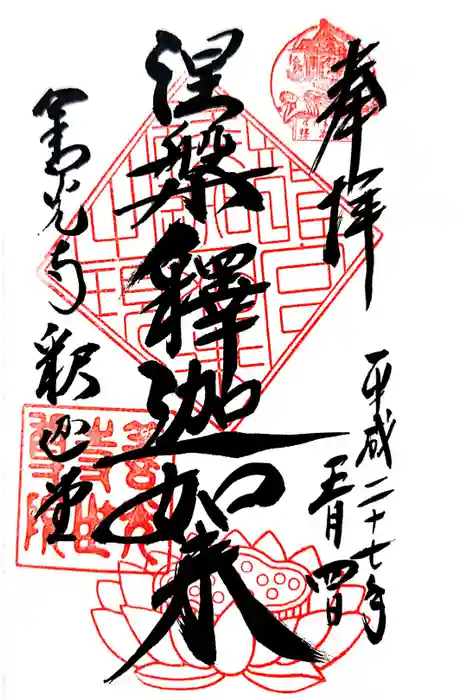 奉拝
平成二十七年
五月四日
涅槃釋迦如来
善光寺 釈迦堂
善光
寺世
尊院